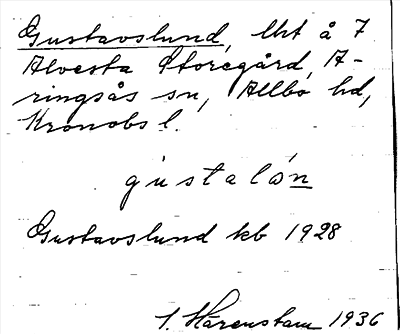 Gustavslund, lht å 7
Alvesta Storegård, A-
ringsås sn, Allbo hd,
Kronobs l.
gustaló̱n
Gustavslund kb 1928
I. Härenstam 1936